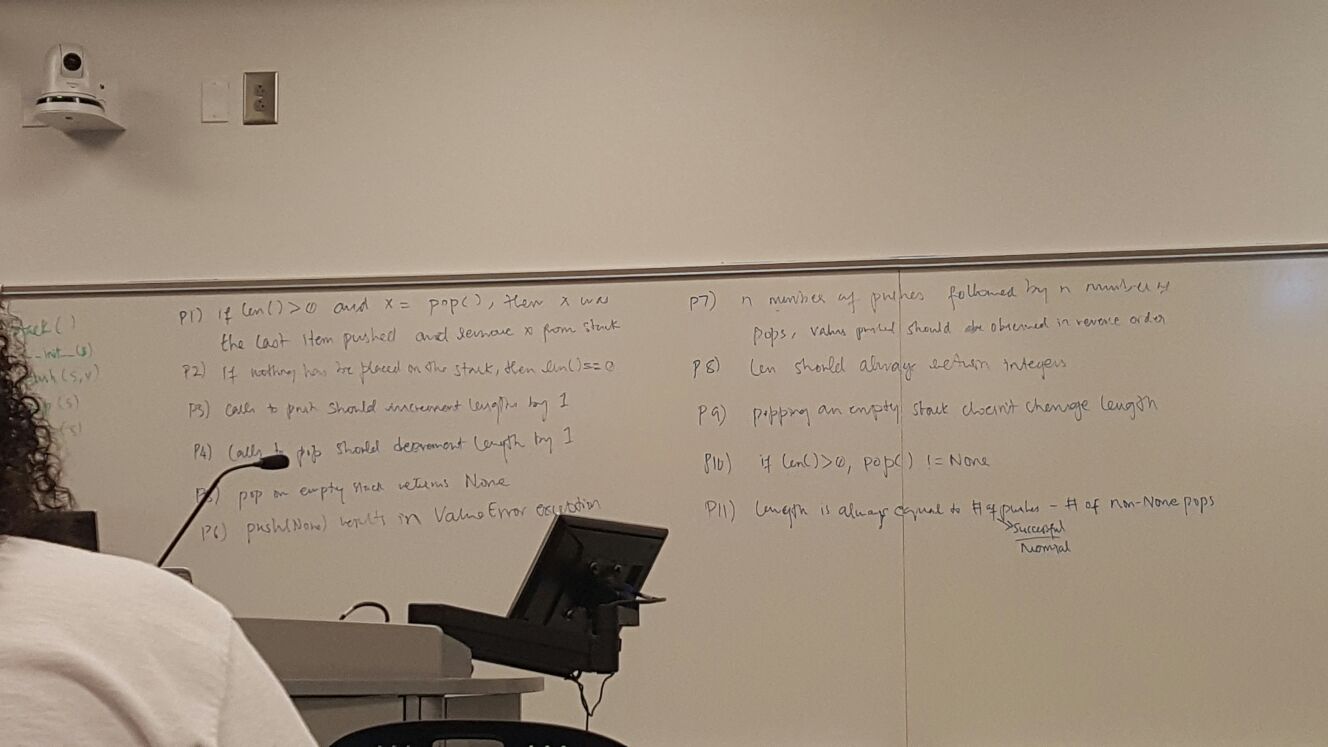 Stack()
__init__(s)
push(s,v)
(s)
(s)
P1) if len()>0 and x = pop(), then x was
the last item pushed and remove x from stack
P2) If nothing has be placed on the stack, then len()==0
P3) calls to push should increment length by 1
P4) calls to pop should decrement length by 1
P5) pop on empty stack returns None
P6) push(None) results in ValueError exception
P7) n number of pushes followed by n number of
pops, values pushed should be observed in reverse order
P8) len should always return integers
P9) popping an empty stack doesn't change length
P10) if len()>0, pop() != None
P11) Length is always equal to # of pushes - # of non-None pops
successful
Normal